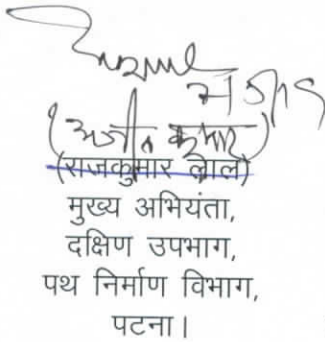 (अजीत कुमार)
(राजकुमार लाल)
मुख्य अभियंता,
दक्षिण उपभाग,
पथ निर्माण विभाग,
पटना।